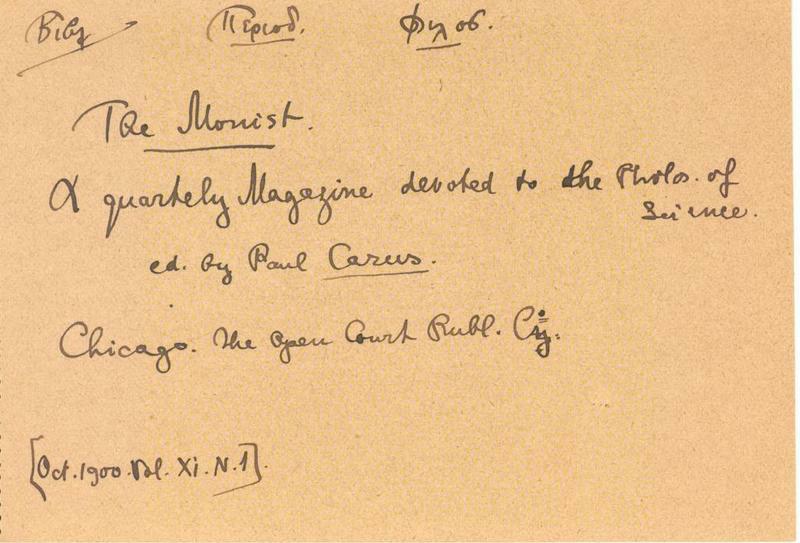 Βιβλ Περιοδ. Φιλοσ.
The Monist.
A quartely Magazine devoted to the Philos. of
Science.
ed. by Paul Carus.
Chicago. The Open Court Publ. Cy.
[Oct. 1900. Vol. XI. N. 1].